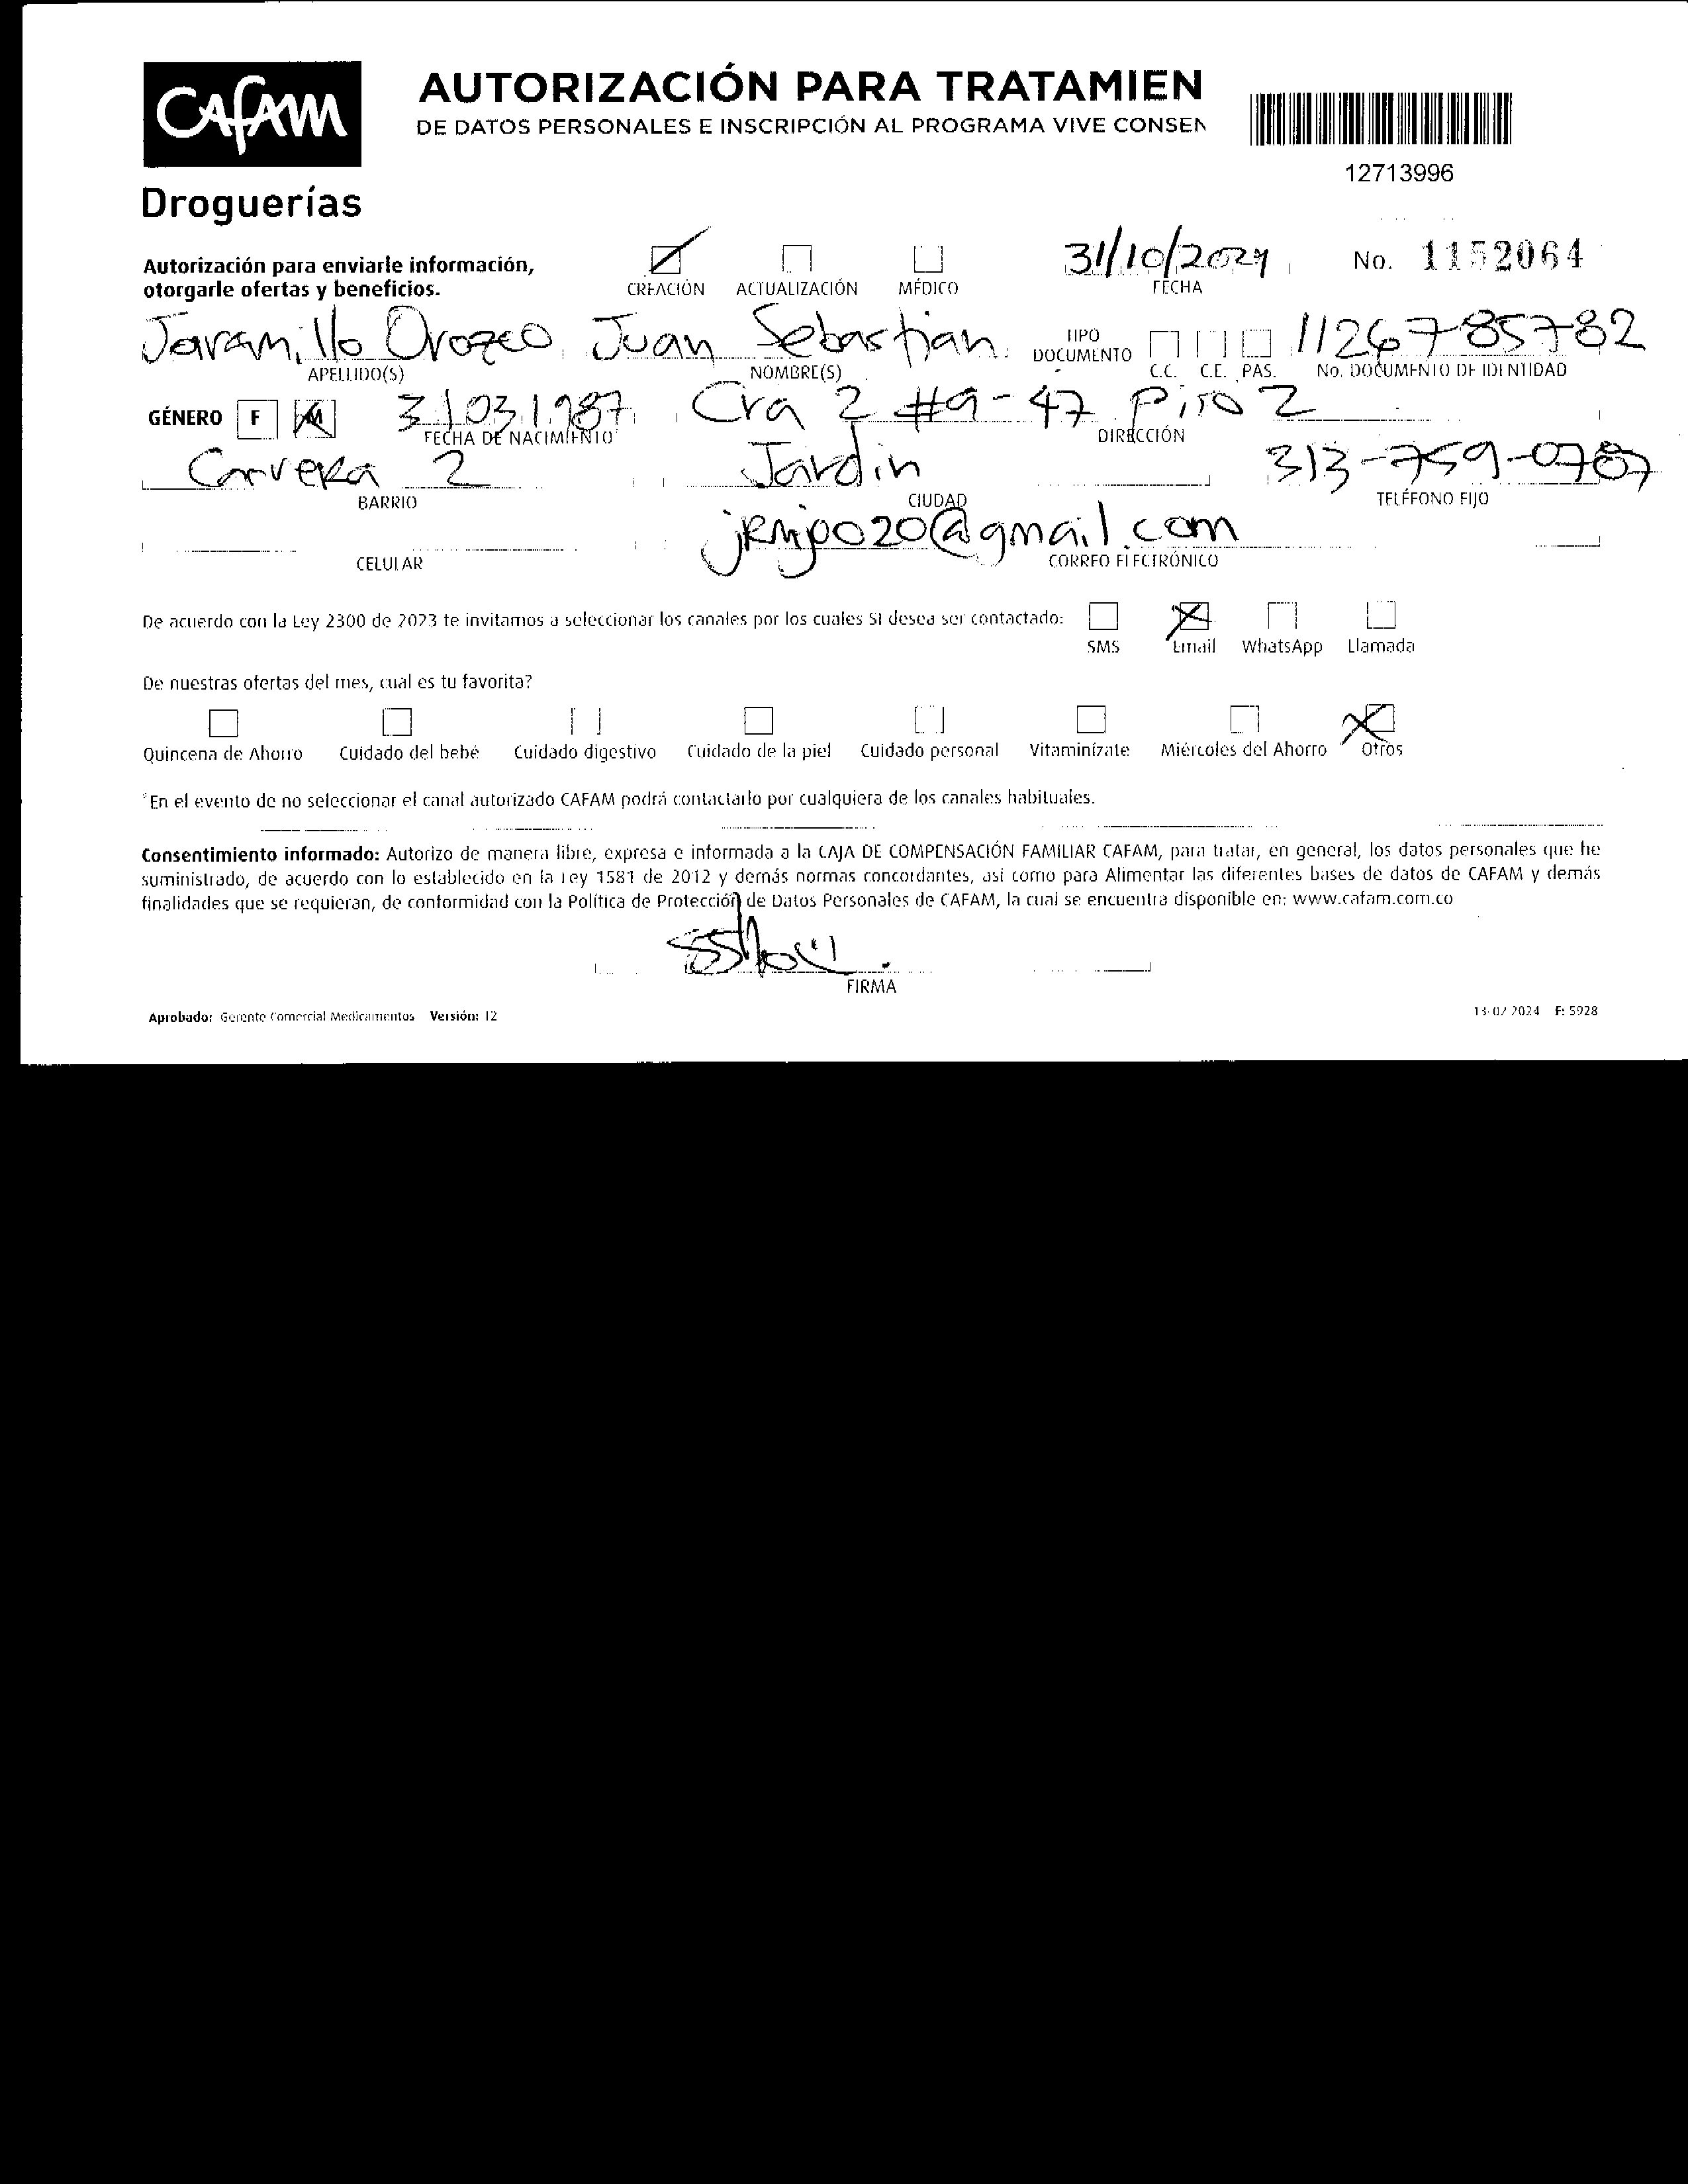 CAFAM
AUTORIZACIÓN PARA TRATAMIEN
DE DATOS PERSONALES E INSCRIPCIÓN AL PROGRAMA VIVE CONSEN
12713996
Droguerías
Autorización para enviarle información,
otorgarle ofertas y beneficios.
CREACIÓN ACTUALIZACIÓN MÉDICO
31/10/2024
FECHA
No. 1152064
Jaramillo Orozco Juan Sebastian
APELLIDO(S) NOMBRE(S)
TIPO
DOCUMENTO
C.C. C.E. PAS.
1126785782
No. DOCUMENTO DE IDENTIDAD
GÉNERO F M 31031987 Cra 2 #9-47 Piso 2
FECHA DE NACIMIENTO DIRECCIÓN
Carrera 2 Jardin 313-759-0787
BARRIO CIUDAD TELÉFONO FIJO
@gmail.com
CELULAR CORREO ELECTRÓNICO
De acuerdo con la Ley 2300 de 2023 te invitamos a seleccionar los canales por los cuales SI desea ser contactado:
SMS Email WhatsApp Llamada
De nuestras ofertas del mes, cual es tu favorita?
Quincena de Ahorro Cuidado del bebé Cuidado digestivo Cuidado de la piel Cuidado personal Vitaminízate Miércoles del Ahorro Otros
*En el evento de no seleccionar el canal autorizado CAFAM podrá contactarlo por cualquiera de los canales habituales.
Consentimiento informado: Autorizo de manera libre, expresa e informada a la CAJA DE COMPENSACIÓN FAMILIAR CAFAM, para tratar, en general, los datos personales que he
suministrado, de acuerdo con lo establecido en la Ley 1581 de 2012 y demás normas concordantes, asi como para Alimentar las diferentes bases de datos de CAFAM y demás
finalidades que se requieran, de conformidad con la Política de Protección de Datos Personales de CAFAM, la cual se encuentra disponible en: www.cafam.com.co
FIRMA
Aprobado: Gerente Comercial Medicamentos Versión: 12
13-02-2024 F: 5928